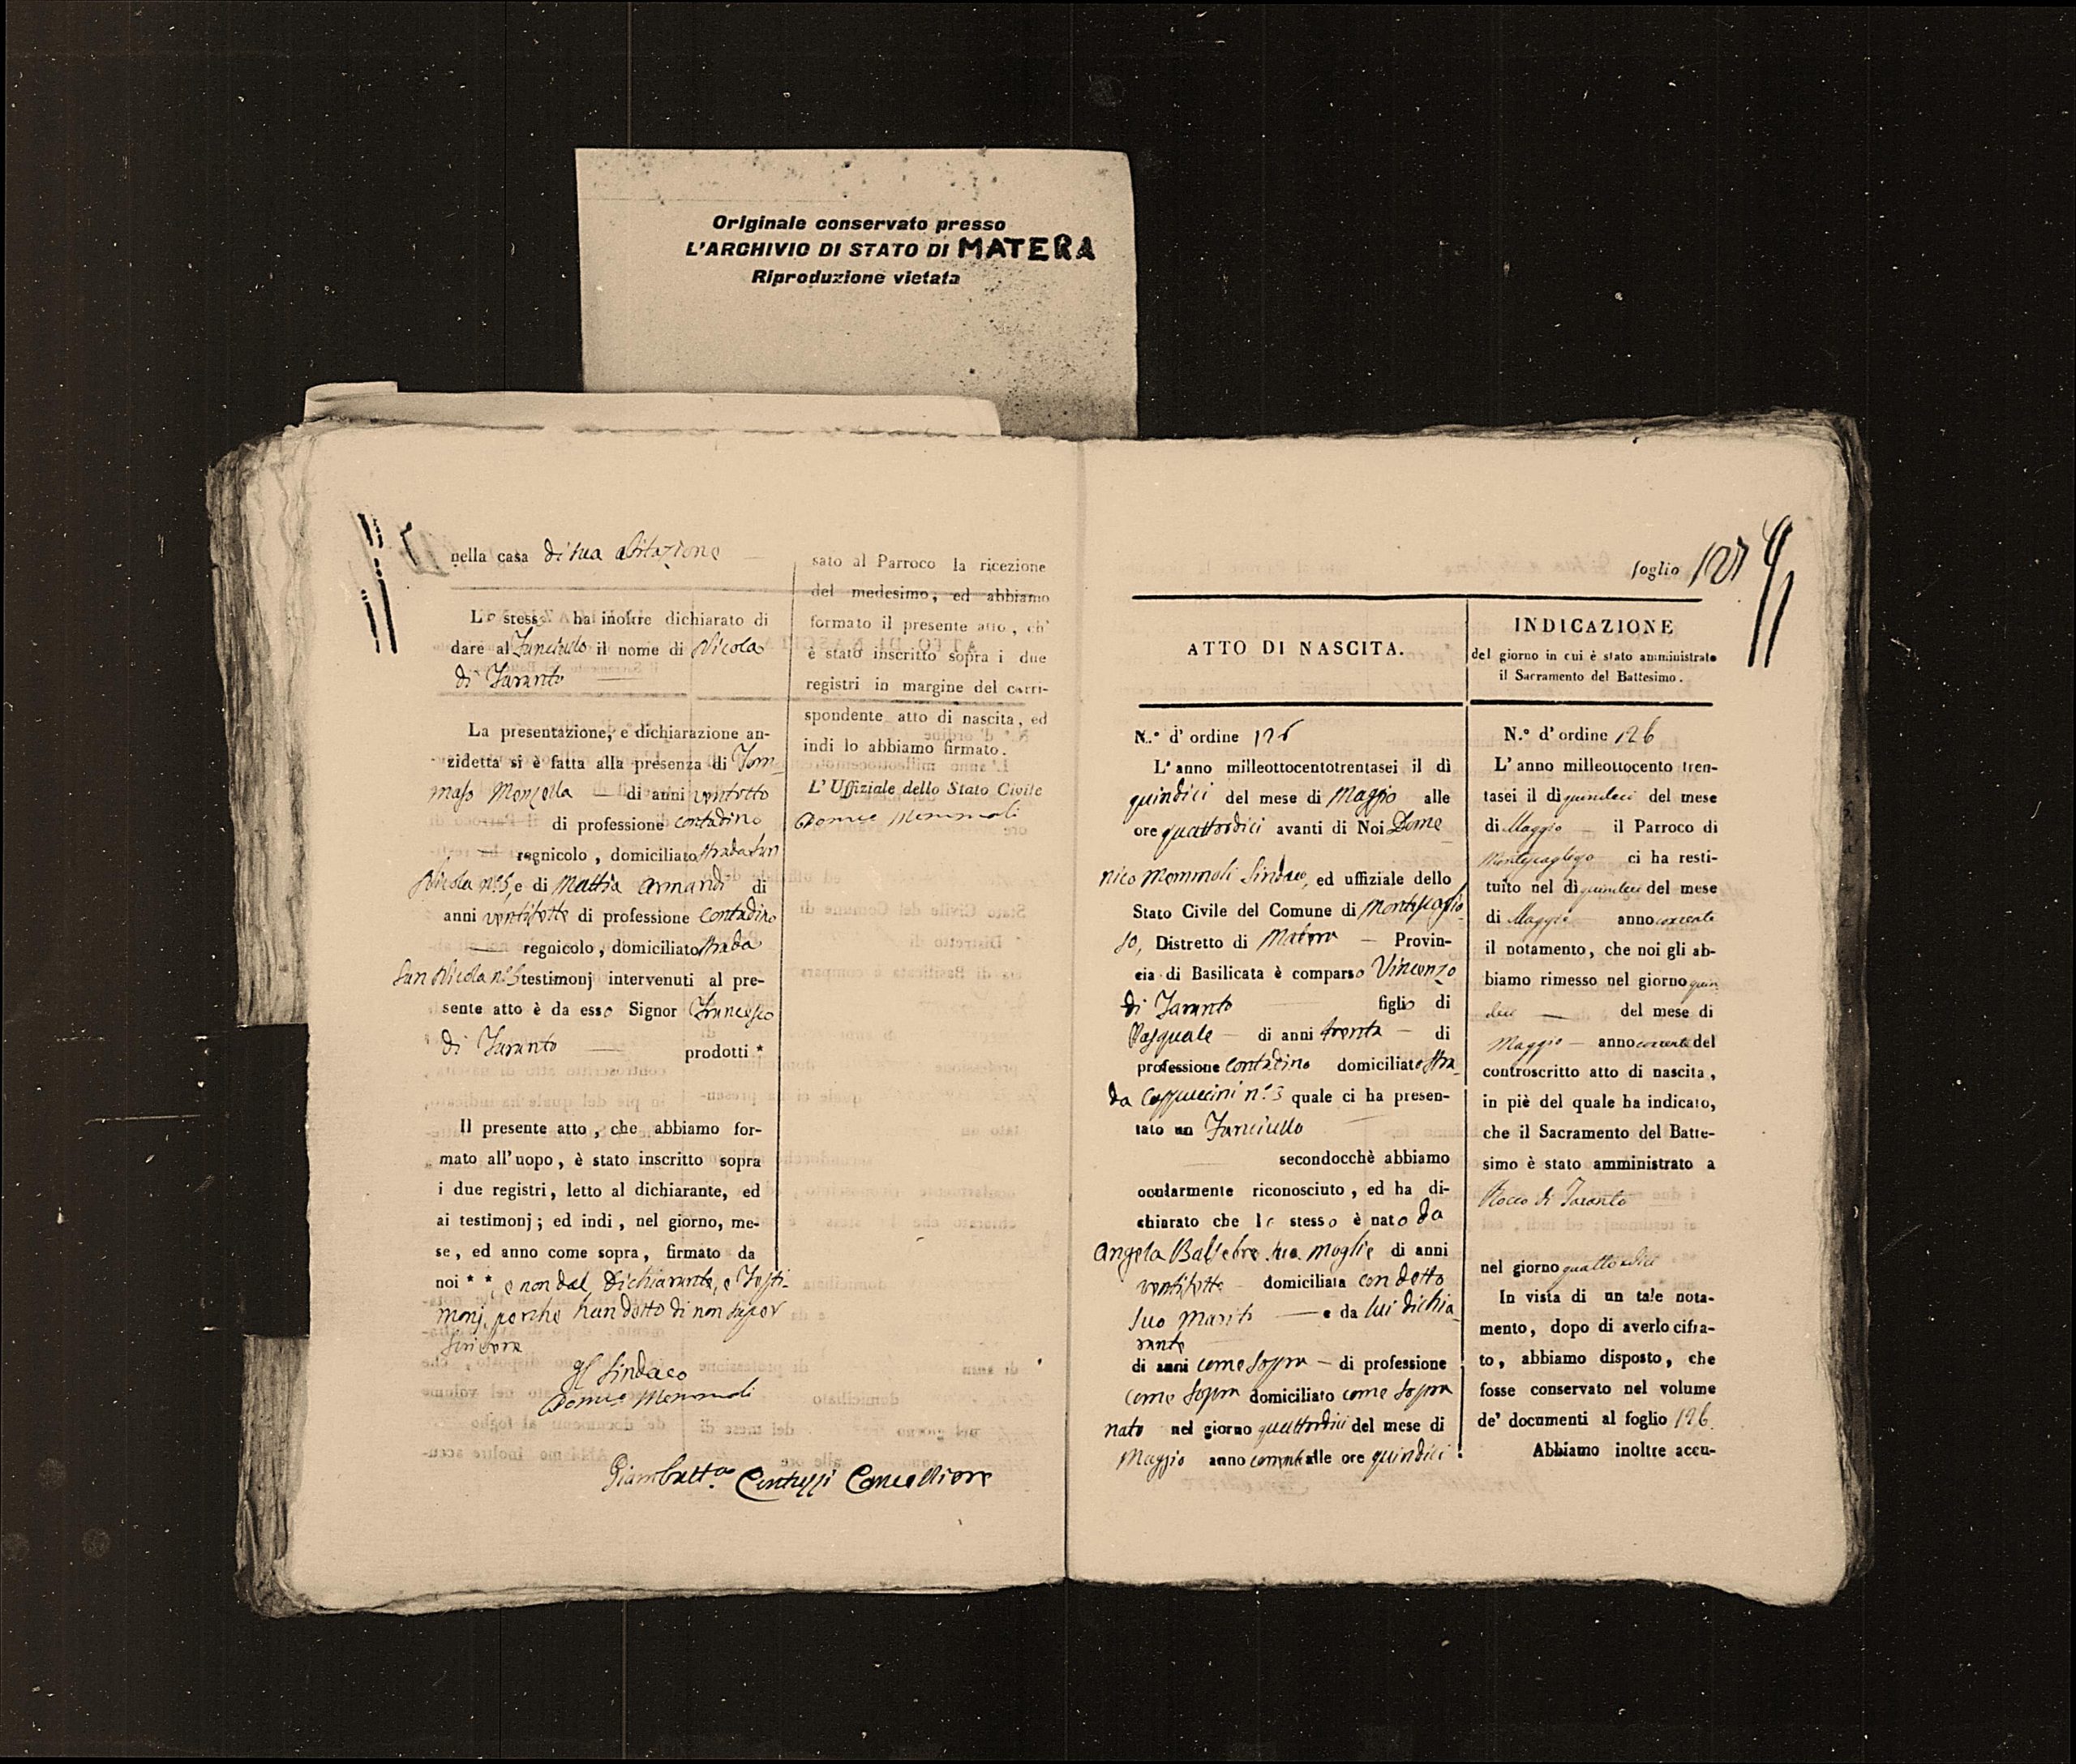 Originale conservato presso
L'ARCHIVIO DI STATO DI MATERA
Riproduzione vietata
nella casa di sua abitazione
Lo stesso ha inoltre dichiarato di
dare al Fanciullo il nome di Nicola
di Taranto
La presentazione, e dichiarazione an-
zidetta si è fatta alla presenza di Tom-
maso di anni ventotto
di professione contadino
regnicolo, domiciliato strada San
Nicola n.° 5, e di Mattia Armandi di
anni ventisette di professione contadino
regnicolo, domiciliato strada
San Nicola n.° 5 testimonj intervenuti al pre-
sente atto è da esso Signor Francesco
di Taranto prodotti *
Il presente atto, che abbiamo for-
mato all'uopo, è stato inscritto sopra
i due registri, letto al dichiarante, ed
ai testimonj; ed indi, nel giorno, me-
se, ed anno come sopra, firmato da
noi * *, e non dal Dichiarante, e Testi-
monj, perche han detto di non saper
scrivere
Il Sindaco
Domco Memmoli
Giambatta Contuzzi Cancelliere
sato al Parroco la ricezione
del medesimo, ed abbiamo
formato il presente atto, ch'
è stato inscritto sopra i due
registri in margine del corri-
spondente atto di nascita, ed
indi lo abbiamo firmato.
L'Uffiziale dello Stato Civile
Domco Memmoli
foglio 127
ATTO DI NASCITA.
N.° d'ordine 126
L'anno milleottocentotrentasei il dì
quindici del mese di Maggio alle
ore quattordici avanti di Noi Dome
nico Memmoli Sindaco, ed uffiziale dello
Stato Civile del Comune di Montescaglio
so, Distretto di Matera Provin-
cia di Basilicata è comparso Vincenzo
di Taranto figlio di
Pasquale di anni trenta di
professione contadino domiciliato stra-
da Cappuccini n.° 3 quale ci ha presen-
tato un Fanciullo
secondocchè abbiamo
ocularmente riconosciuto, ed ha di-
chiarato che lo stesso è nato da
Angela sua moglie di anni
ventisette domiciliata con detto
suo Marito e da lui dichia
rante
di anni come sopra di professione
come sopra domiciliato come sopra
nato nel giorno quattordici del mese di
Maggio anno corrente alle ore quindici
INDICAZIONE
del giorno in cui è stato amministrato
il Sacramento del Battesimo.
N.° d'ordine 126
L'anno milleottocento tren-
tasei il dì quindeci del mese
di Maggio il Parroco di
Montescaglioso ci ha resti-
tuito nel dì quindeci del mese
di Maggio anno corrente
il notamento, che noi gli ab-
biamo rimesso nel giorno quin
deci del mese di
Maggio anno corrente del
controscritto atto di nascita,
in piè del quale ha indicato,
che il Sacramento del Batte-
simo è stato amministrato a
Rocco di Taranto
nel giorno quattordici
In vista di un tale nota-
mento, dopo di averlo cifra-
to, abbiamo disposto, che
fosse conservato nel volume
de' documenti al foglio 126.
Abbiamo inoltre accu-